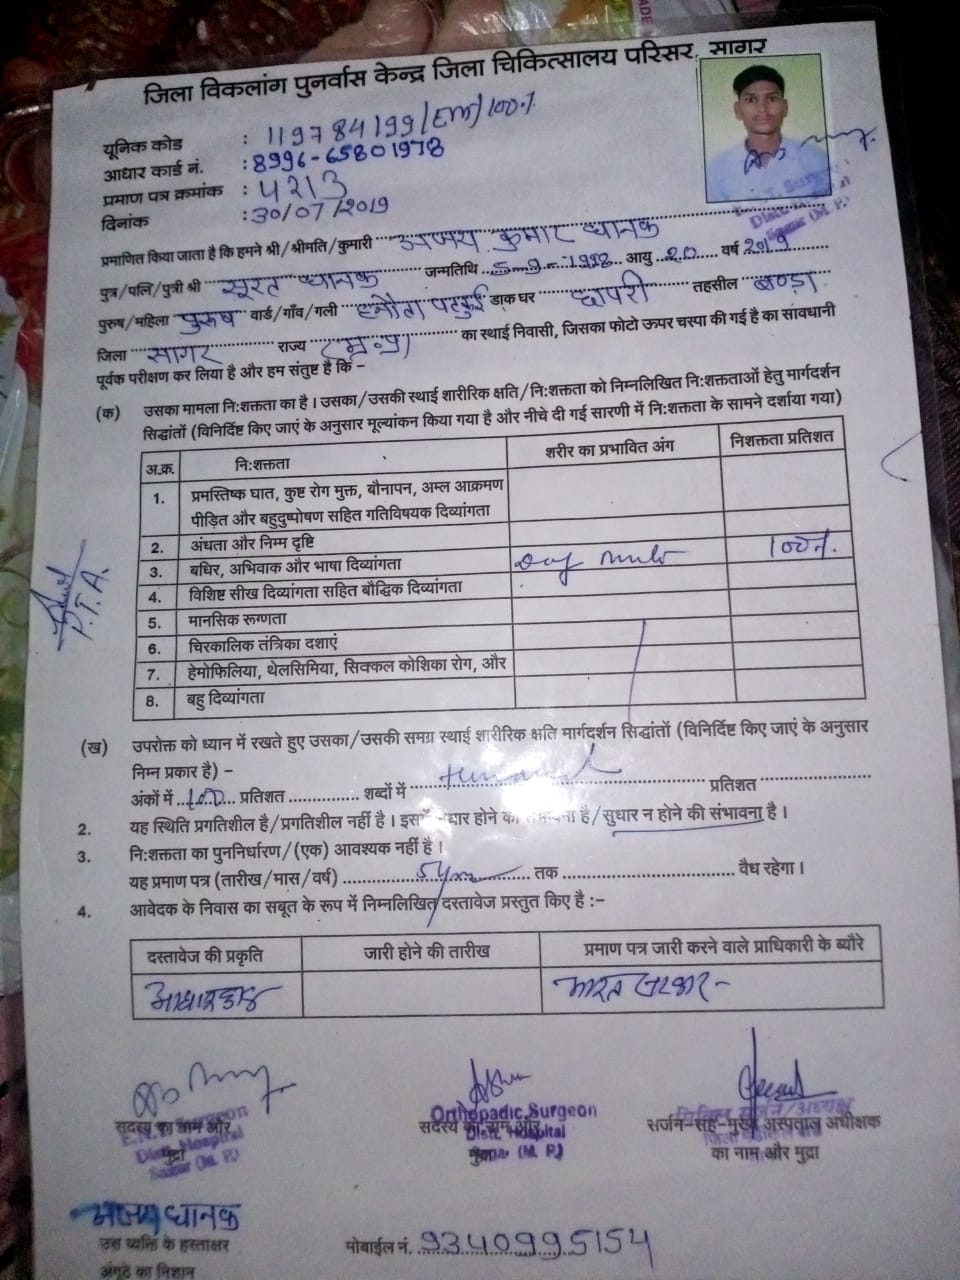 जिला विकलांग पुनर्वास केन्द्र जिला चिकित्सालय परिसर, सागर
यूनिक कोड : 119784199/(EM)/100%
आधार कार्ड नं. : 8996-65801978
प्रमाण पत्र क्रमांक : 4213
दिनांक : 30/07/2019
प्रमाणित किया जाता है कि हमने श्री/श्रीमति/कुमारी अजय कुमार धानक
पुत्र/पत्नि/पुत्री श्री सूरत धानक जन्मतिथि 5-9-1998 आयु 20 वर्ष 2019
पुरुष/महिला पुरुष वार्ड/गाँव/गली हनौता पटकुई डाक घर छापरी तहसील बण्डा
जिला सागर राज्य (म.प्र) का स्थाई निवासी, जिसका फोटो ऊपर चस्पा की गई है का सावधानी
पूर्वक परीक्षण कर लिया है और हम संतुष्ट है कि –
(क) उसका मामला नि:शक्तता का है। उसका/उसकी स्थाई शारीरिक क्षति/नि:शक्तता को निम्नलिखित नि:शक्तताओं हेतु मार्गदर्शन
सिद्धांतों (विनिर्दिष्ट किए जाएं के अनुसार मूल्यांकन किया गया है और नीचे दी गई सारणी में नि:शक्तता के सामने दर्शाया गया)
अ.क्र. नि:शक्तता शरीर का प्रभावित अंग निशक्तता प्रतिशत
1. प्रमस्तिष्क घात, कुष्ट रोग मुक्त, बौनापन, अम्ल आक्रमण
पीड़ित और बहुदुष्पोषण सहित गतिविषयक दिव्यांगता
2. अंधता और निम्म दृष्टि
3. बधिर, अभिवाक और भाषा दिव्यांगता 100%
4. विशिष्ट सीख दिव्यांगता सहित बौद्धिक दिव्यांगता
5. मानसिक रूग्णता
6. चिरकालिक तंत्रिका दशाएं
7. हेमोफिलिया, थेलसिमिया, सिक्कल कोशिका रोग, और
8. बहु दिव्यांगता
P.T.A.
(ख) उपरोक्त को ध्यान में रखते हुए उसका/उसकी समग्र स्थाई शारीरिक क्षति मार्गदर्शन सिद्धांतों (विनिर्दिष्ट किए जाएं के अनुसार
निम्न प्रकार है) –
अंकों में 100 प्रतिशत शब्दों में प्रतिशत
2. यह स्थिति प्रगतिशील है/प्रगतिशील नहीं है। होने है/सुधार न होने की संभावना है।
3. नि:शक्तता का पुननिर्धारण/(एक) आवश्यक नहीं है।
यह प्रमाण पत्र (तारीख/मास/वर्ष) तक वैध रहेगा।
4. आवेदक के निवास का सबूत के रूप में निम्नलिखित दस्तावेज प्रस्तुत किए है :–
दस्तावेज की प्रकृति जारी होने की तारीख प्रमाण पत्र जारी करने वाले प्राधिकारी के ब्यौरे
आधारकार्ड भारत सरकार-
Orthopadic Surgeon
सदस्य का नाम और सदस्य का नाम और सर्जन-सह-मुख्य अस्पताल अधीक्षक
मुद्रा मुद्रा का नाम और मुद्रा
Distt. Hospital
Sagar (M. P.)
अजय धानक
उस व्यक्ति के हस्ताक्षर मोबाईल नं. 9340995154
अंगूठे का निशान